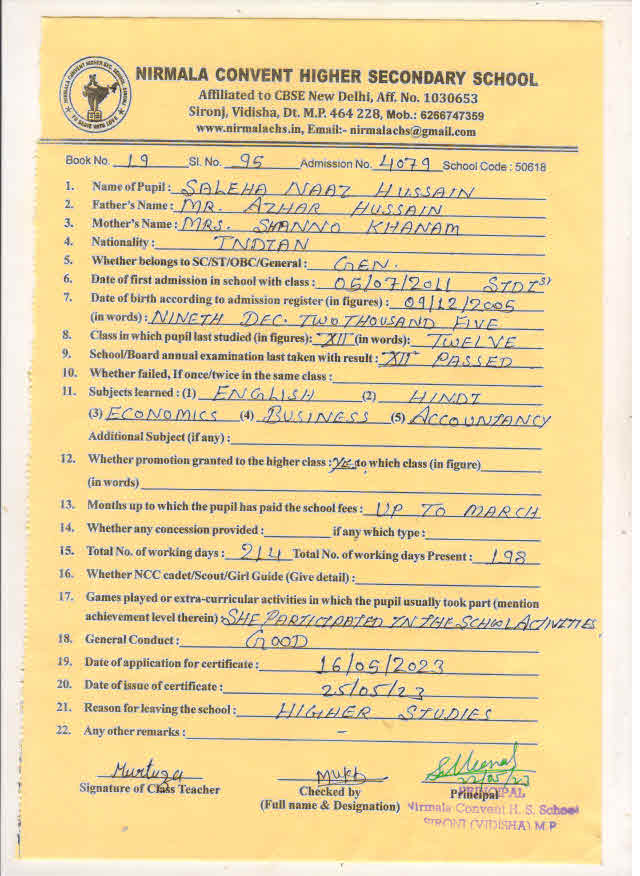 NIRMALA CONVENT HIGHER SEC. SCHOOL, SIRONJ
TO SERVE WITH LOVE
NIRMALA CONVENT HIGHER SECONDARY SCHOOL
Affiliated to CBSE New Delhi, Aff. No. 1030653
Sironj, Vidisha, Dt. M.P. 464 228, Mob.: 6266747359
www.nirmalachs.in, Email:- nirmalachs@gmail.com
Book No. 19 Sl. No. 95 Admission No. 4079 School Code : 50618
1. Name of Pupil : SALEHA NAAZ HUSSAIN
2. Father's Name : MR. AZHAR HUSSAIN
3. Mother's Name : MRS. SHANNO KHANAM
4. Nationality : INDIAN
5. Whether belongs to SC/ST/OBC/General : GEN.
6. Date of first admission in school with class : 05/07/2011 STD I
7. Date of birth according to admission register (in figures) : 09/12/2005
(in words) : NINETH DEC. TWO THOUSAND FIVE
8. Class in which pupil last studied (in figures): XII (in words): TWELVE
9. School/Board annual examination last taken with result : XII PASSED
10. Whether failed, If once/twice in the same class :
11. Subjects learned : (1) ENGLISH (2) HINDI
(3) ECONOMICS (4) BUSINESS (5) ACCOUNTANCY
Additional Subject (if any) :
12. Whether promotion granted to the higher class : YES to which class (in figure)
(in words)
13. Months up to which the pupil has paid the school fees : UP TO MARCH
14. Whether any concession provided : if any which type :
15. Total No. of working days : 214 Total No. of working days Present : 198
16. Whether NCC cadet/Scout/Girl Guide (Give detail) :
17. Games played or extra-curricular activities in which the pupil usually took part (mention
achievement level therein) : SHE PARTICIPATED IN THE SCHOOL ACTIVITIES
18. General Conduct : GOOD
19. Date of application for certificate : 16/05/2023
20. Date of issue of certificate : 25/05/23
21. Reason for leaving the school : HIGHER STUDIES
22. Any other remarks : -
Murtuza
Signature of Class Teacher
Checked by
(Full name & Designation)
22/05/23
Principal
PRINCIPAL
Nirmala Convent H. S. School
SIRONJ (VIDISHA) M.P